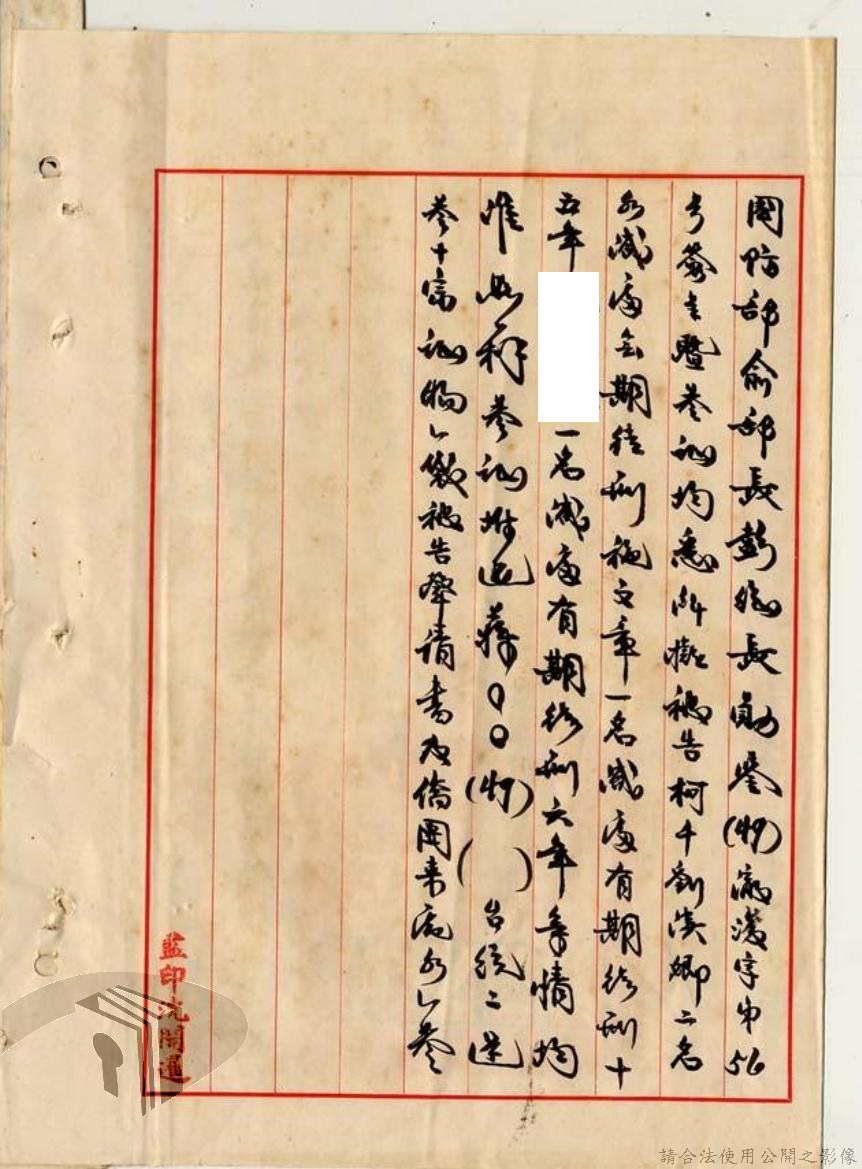 國防部俞部長彭總長勛鑒(卅)瀛濩字第56
号簽呈暨卷證均悉所擬被告柯千劉漢卿二名
各減處無期徒刑施文章一名減處有期徒刑十
五年
一名減處有期徒刑六年等情均
准照辦卷證附還蔣○○(卅)( )台統二還
卷十宗證物一袋被告聲請書及僑團來電各一卷
監印沈開暹
請合法使用公開之影像